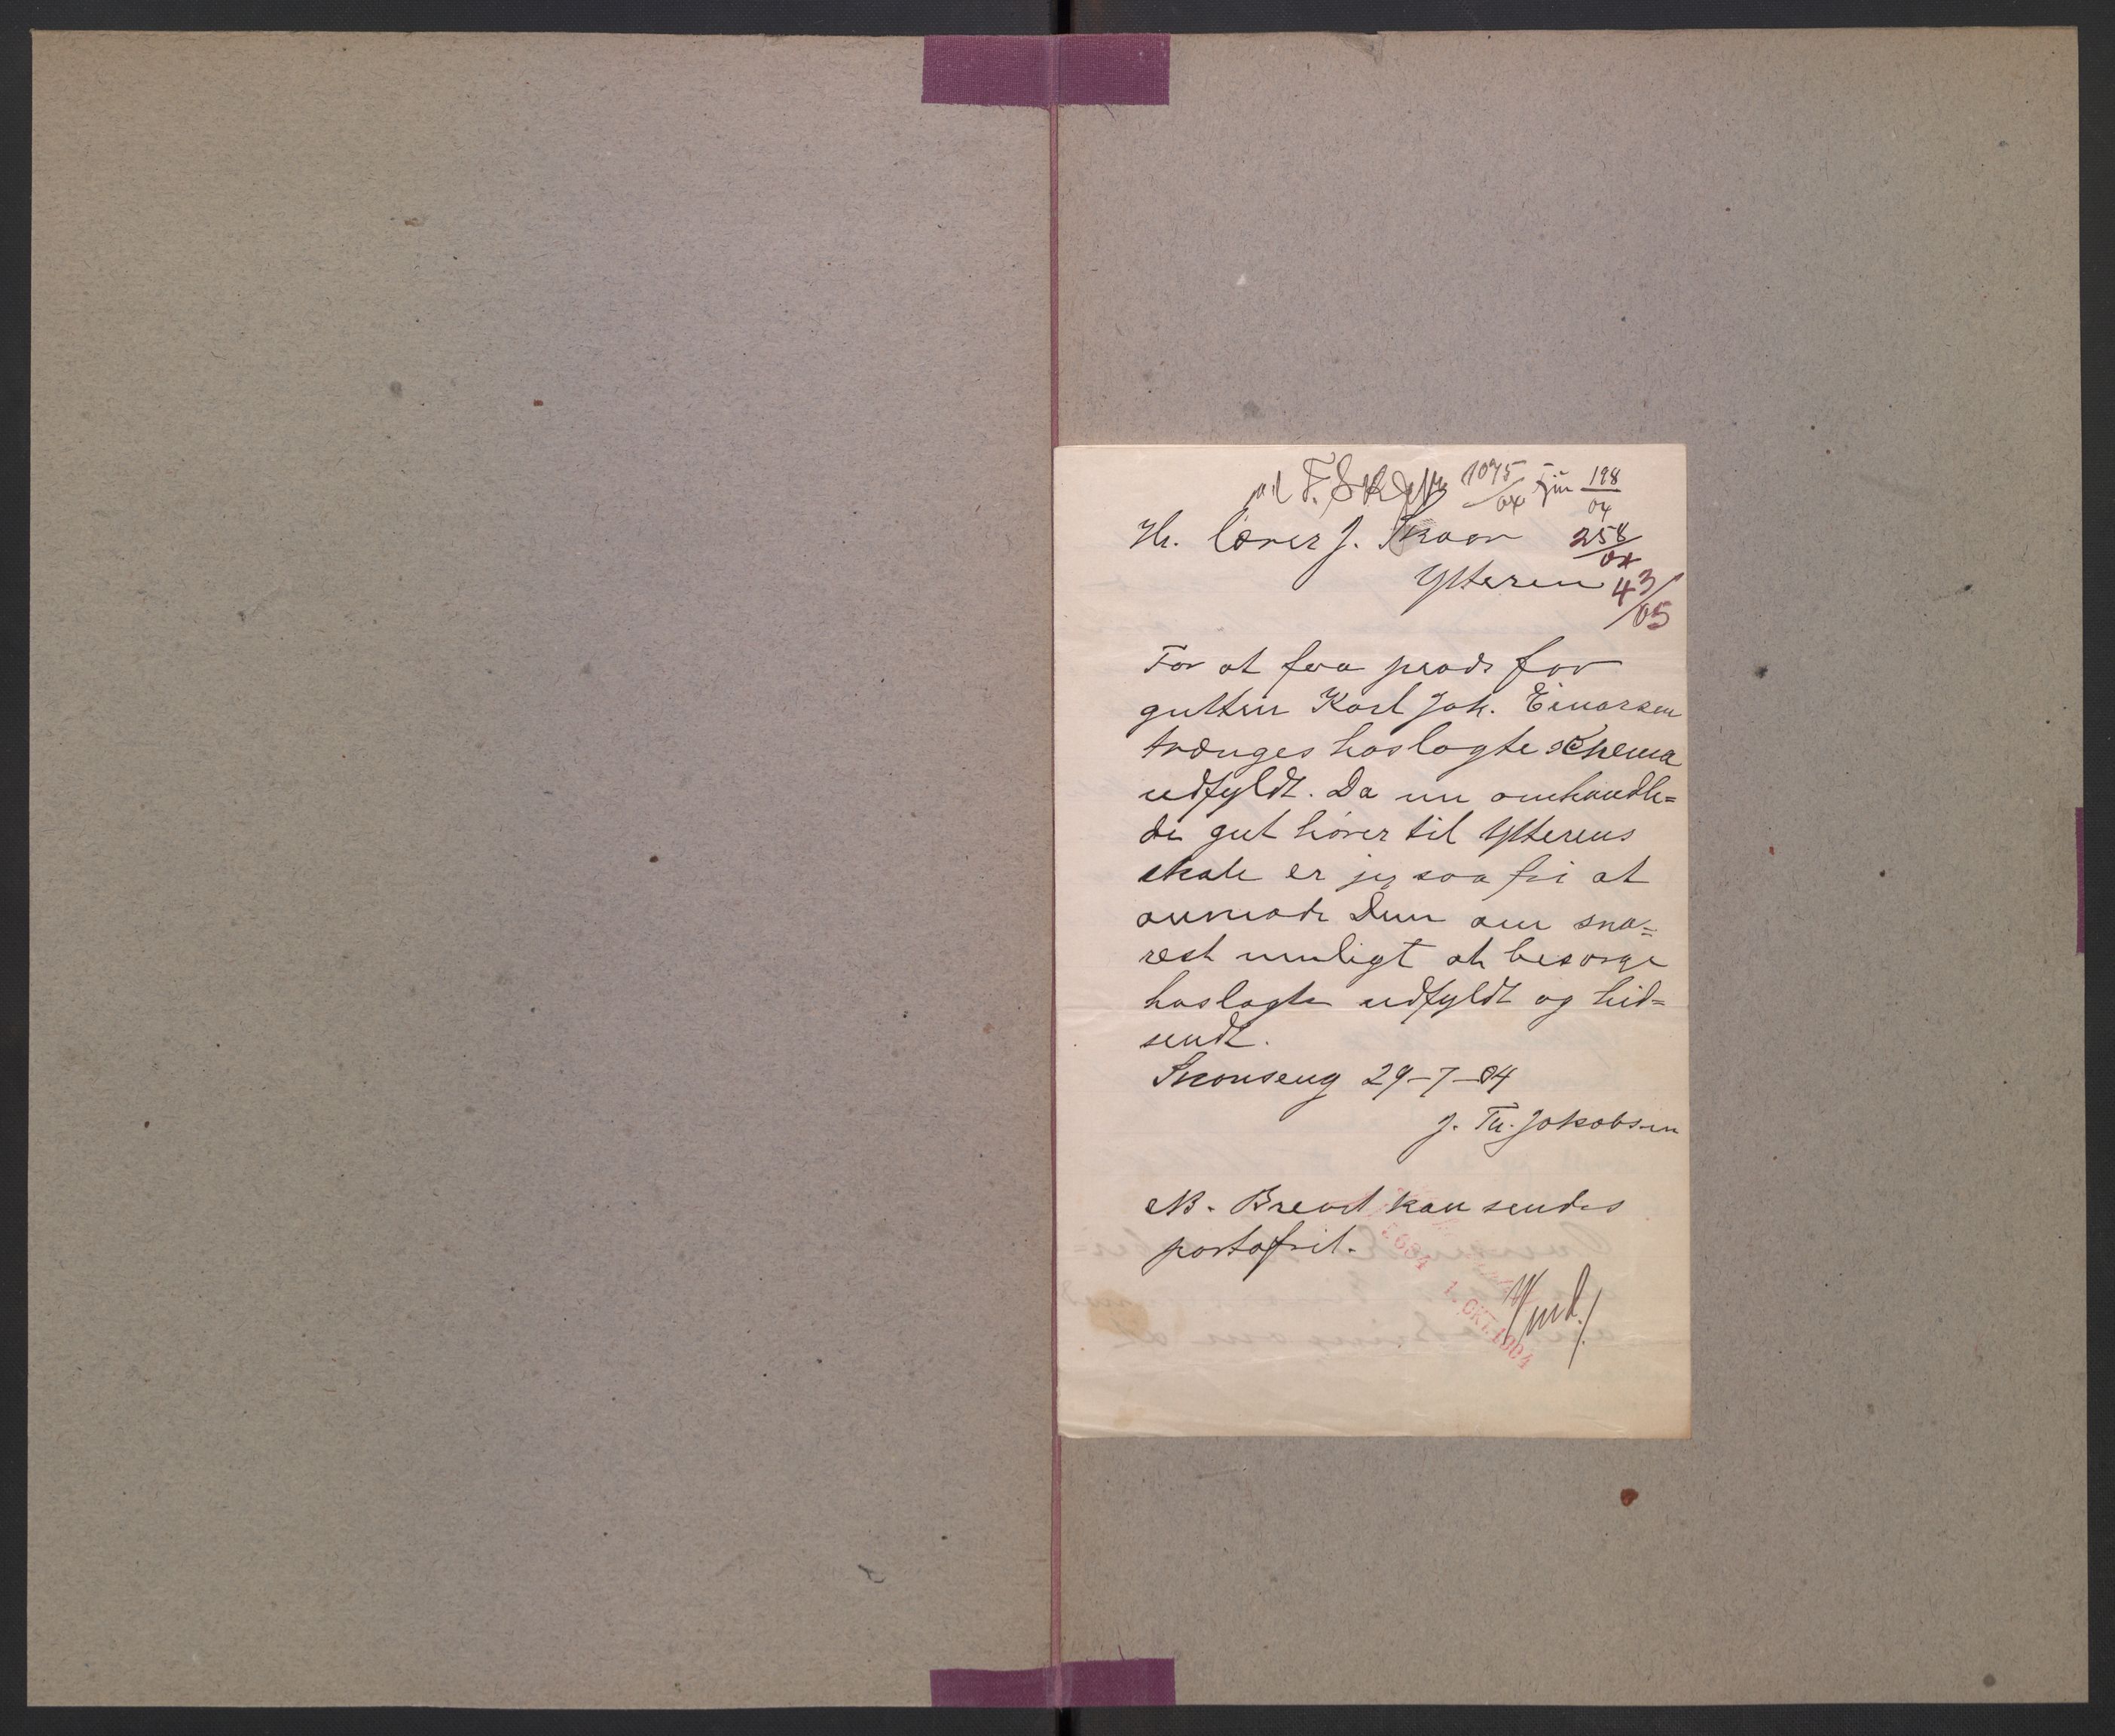 1075/04 Fin 198/04
Hr. lærer J. Skaar 258/04
Ytteren 43/05
For at faa plads for
gutten Karl Joh. Einarsen
trænges hoslagte schema
udfyldt. Da nu omhandle=
de gut hører til Ytterens
skole er jeg saa fri at
anmode Dem om sna=
rest muligt at besørge
hoslagte udfyldt og hid=
sendt.
Skonseng 29-7-04
J. Th. Jakobsen
NB. Brevet kan sendes
portofrit.
5684
1. OKT. 1904
Vend!